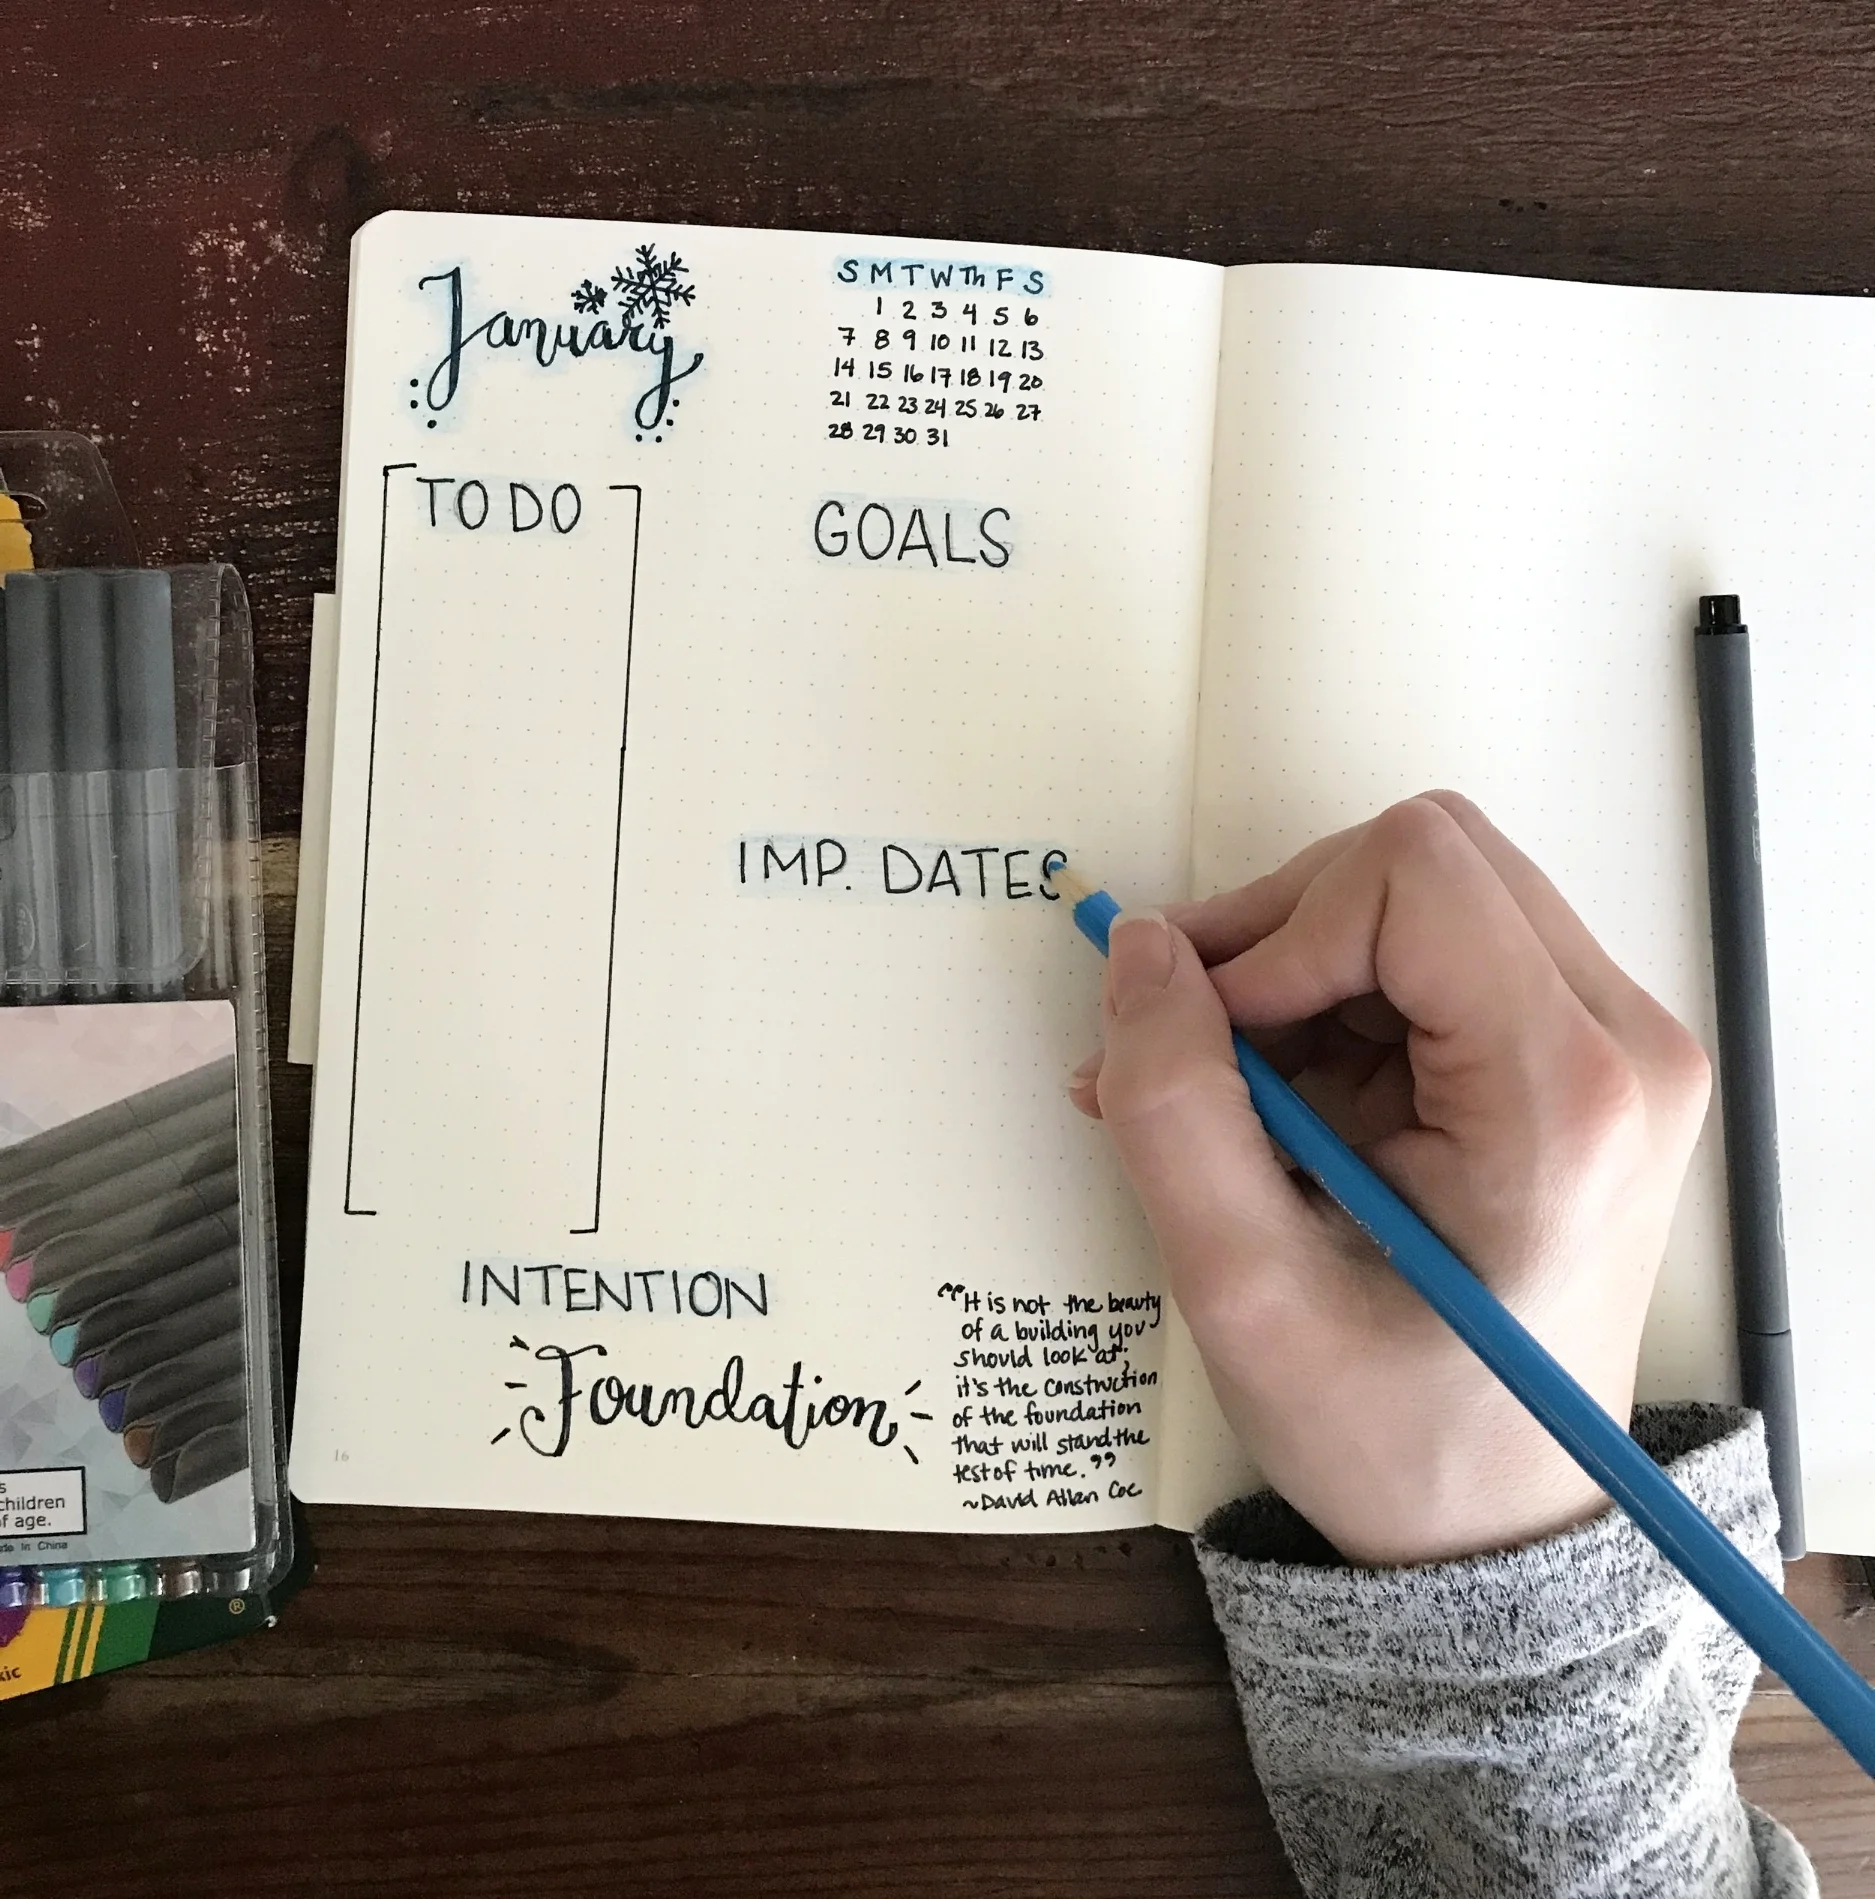 January
S M T W Th F S
1 2 3 4 5 6
7 8 9 10 11 12 13
14 15 16 17 18 19 20
21 22 23 24 25 26 27
28 29 30 31
TO DO
GOALS
IMP. DATES
INTENTION
Foundation
"It is not the beauty
of a building you
should look at;
it's the construction
of the foundation
that will stand the
test of time."
~David Allan Coe
16
children
of age.
In China
®